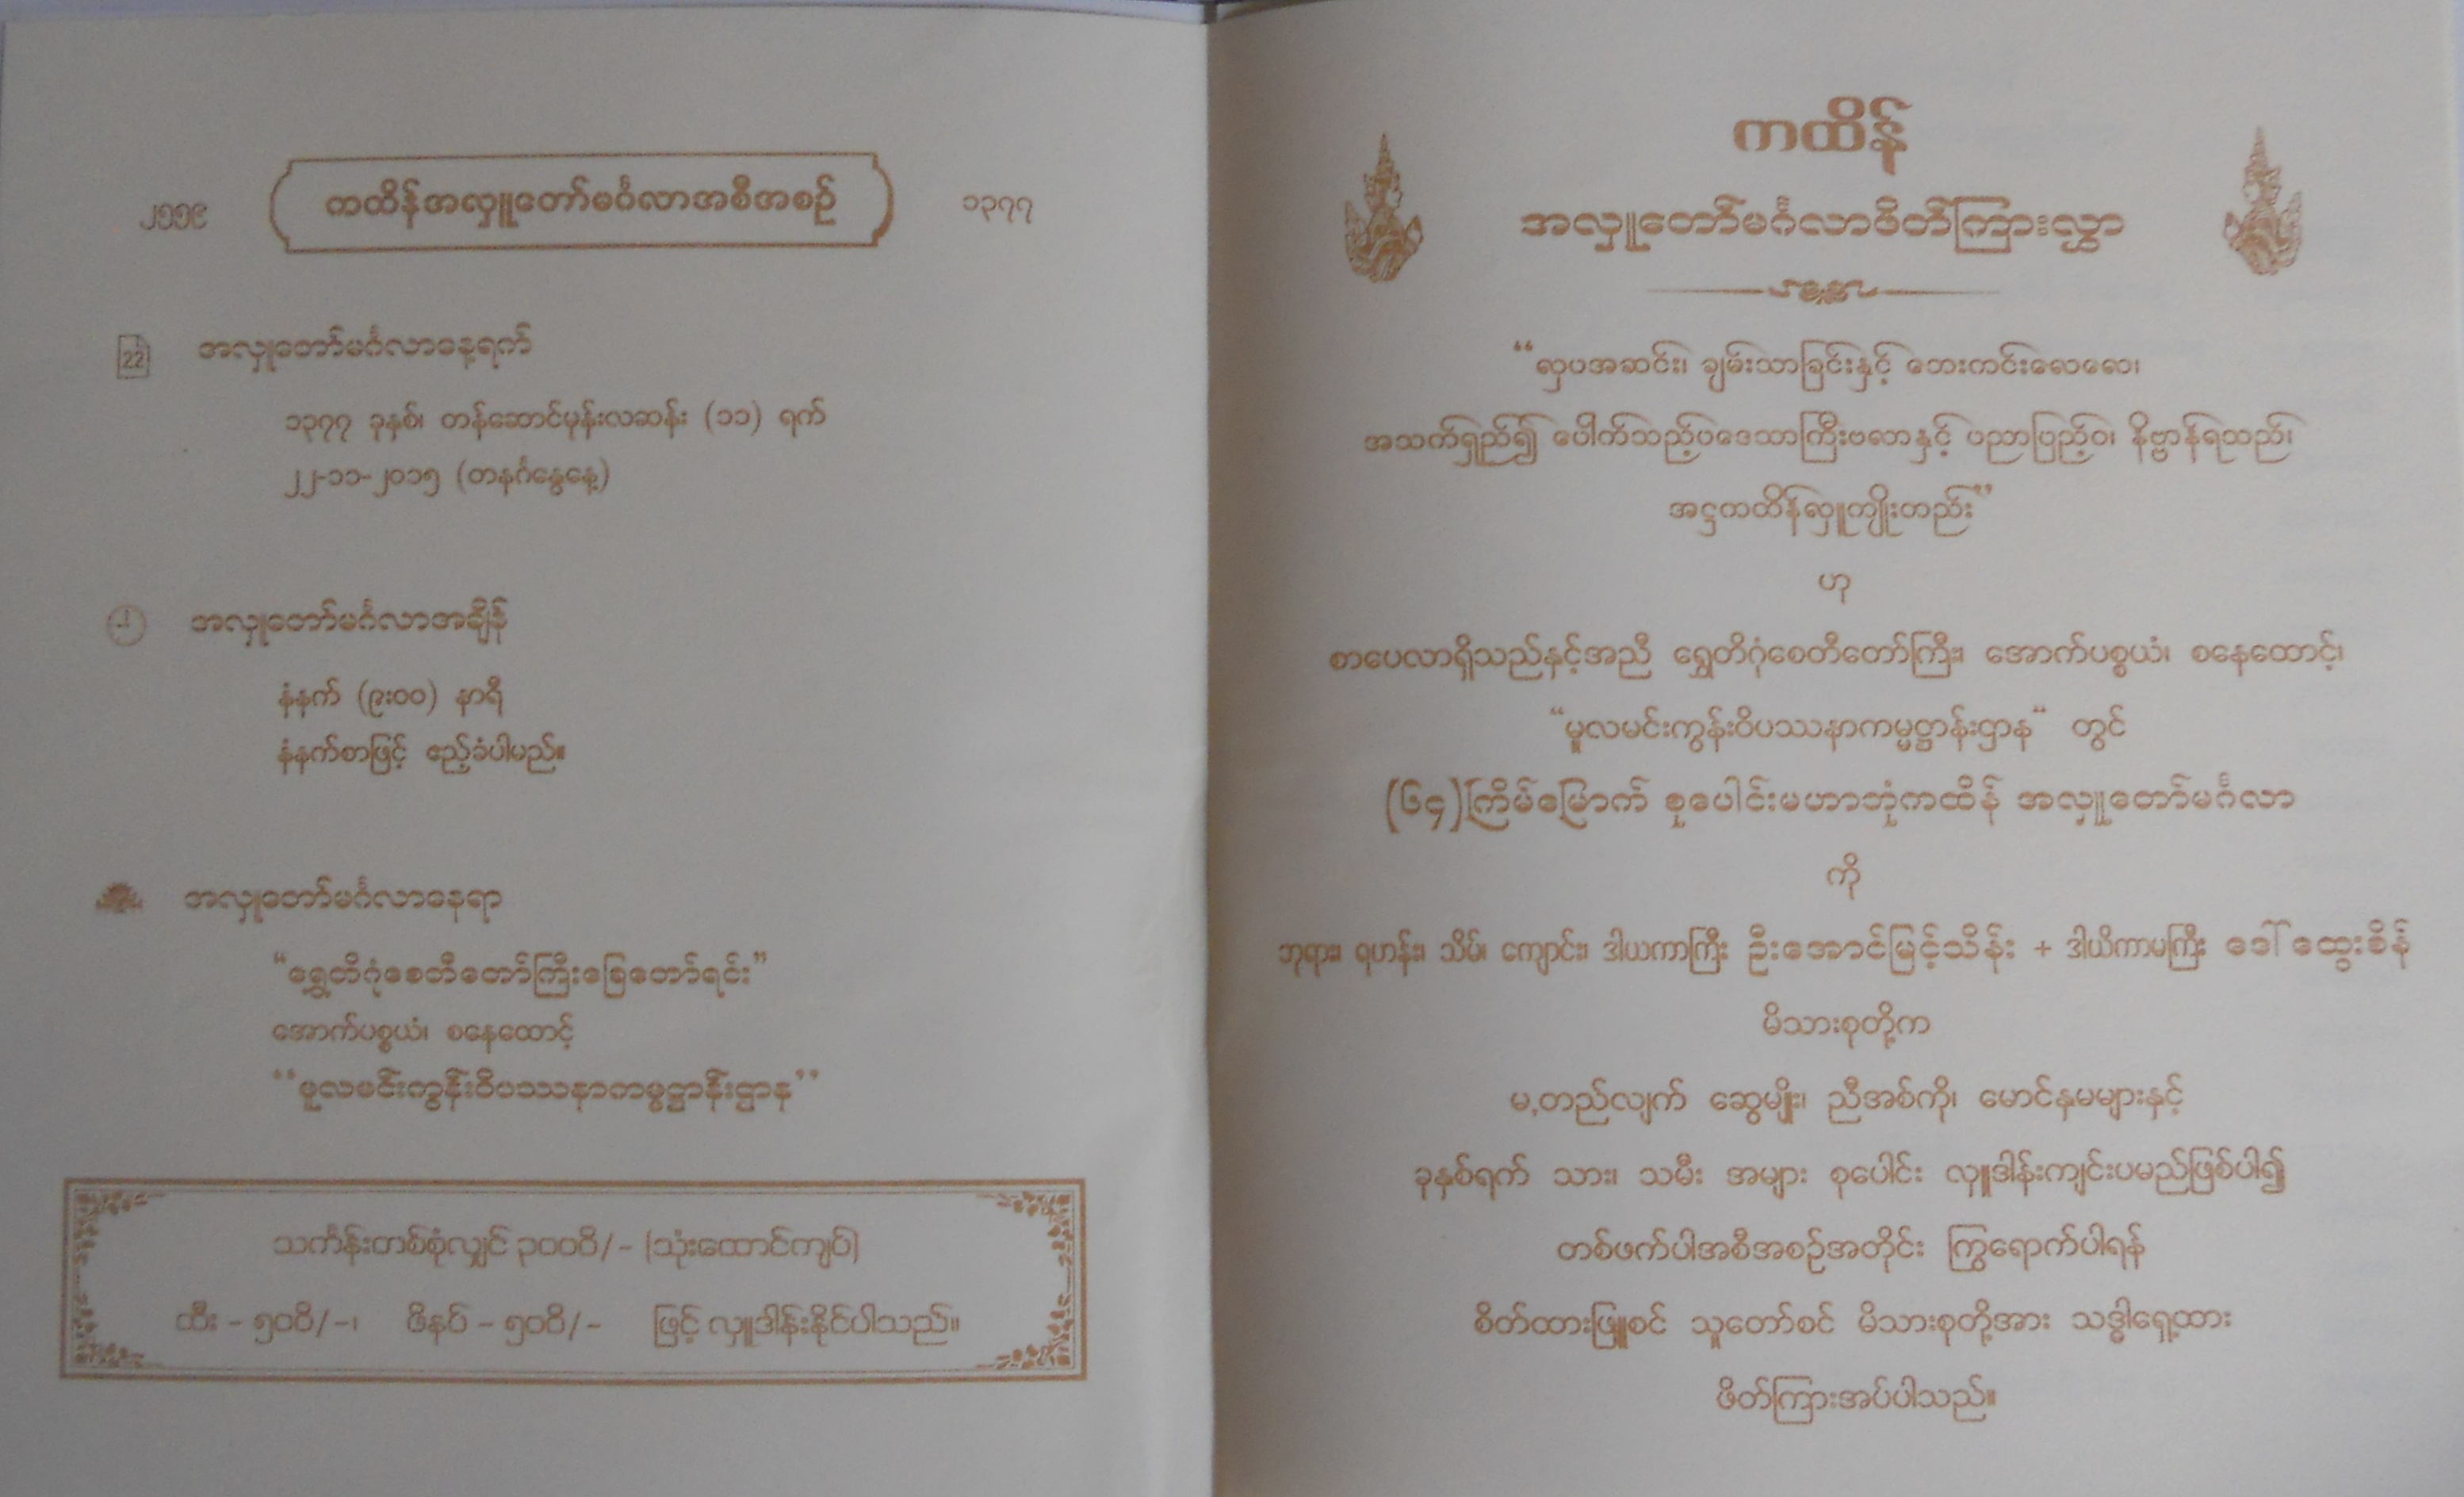 ၂၅၅၉ ကထိန်အလှူတော်မင်္ဂလာအစီအစဉ် ၁၃၇၇
22 အလှူတော်မင်္ဂလာနေ့ရက်
၁၃၇၇ ခုနှစ်၊ တန်ဆောင်မုန်းလဆန်း (၁၁) ရက်
၂၂-၁၁-၂၀၁၅ (တနင်္ဂနွေနေ့)
အလှူတော်မင်္ဂလာအချိန်
နံနက် (၉း၀၀) နာရီ
နံနက်စာဖြင့် ဧည့်ခံပါမည်။
အလှူတော်မင်္ဂလာနေရာ
“ရွှေတိဂုံစေတီတော်ကြီးခြေတော်ရင်း”
အောက်ပစ္စယံ၊ စနေထောင့်
“မူလမင်းကွန်းဝိပဿနာကမ္မဋ္ဌာန်းဌာန”
သင်္ကန်းတစ်စုံလျှင် ၃၀၀၀ိ/- (သုံးထောင်ကျပ်)
ထီး - ၅၀၀ိ/-၊ ဖိနပ် - ၅၀၀ိ/- ဖြင့် လှူဒါန်းနိုင်ပါသည်။
ကထိန်
အလှူတော်မင်္ဂလာဖိတ်ကြားလွှာ
“လှပအဆင်း၊ ချမ်းသာခြင်းနှင့် ဘေးကင်းလေလေ၊
အသက်ရှည်၍ ပေါက်သည့်ပဒေသာကြီးဗလာနှင့် ပညာပြည့်ဝ၊ နိဗ္ဗာန်ရသည်၊
အဋ္ဌကထိန်လှူကျိုးတည်း”
ဟု
စာပေလာရှိသည်နှင့်အညီ ရွှေတိဂုံစေတီတော်ကြီး၊ အောက်ပစ္စယံ၊ စနေထောင့်၊
“မူလမင်းကွန်းဝိပဿနာကမ္မဋ္ဌာန်းဌာန“ တွင်
(၆၄)ကြိမ်မြောက် စုပေါင်းမဟာဘုံကထိန် အလှူတော်မင်္ဂလာ
ကို
ဘုရား၊ ရဟန်း၊ သိမ်၊ ကျောင်း၊ ဒါယကာကြီး ဦးအောင်မြင့်သိန်း + ဒါယိကာမကြီး ဒေါ်ထွေးစိန်
မိသားစုတို့က
မ,တည်လျက် ဆွေမျိုး၊ ညီအစ်ကို၊ မောင်နှမများနှင့်
ခုနှစ်ရက် သား၊ သမီး အများ စုပေါင်း လှူဒါန်းကျင်းပမည်ဖြစ်ပါ၍
တစ်ဖက်ပါအစီအစဉ်အတိုင်း ကြွရောက်ပါရန်
စိတ်ထားဖြူစင် သူတော်စင် မိသားစုတို့အား သဒ္ဓါရှေ့ထား
ဖိတ်ကြားအပ်ပါသည်။